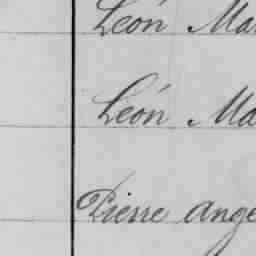 Léon Ma
Léon Ma
Pierre Ange